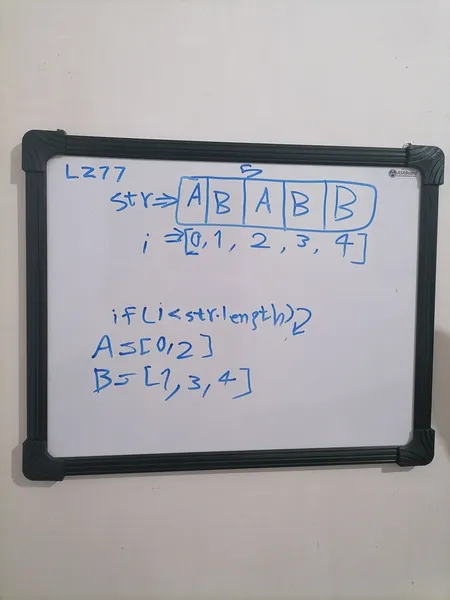 LZ77
5
str⇒ A B A B B
i ⇒ [0, 1, 2, 3, 4]
if(i<str.length)2
A=[0,2]
B=[1,3,4]